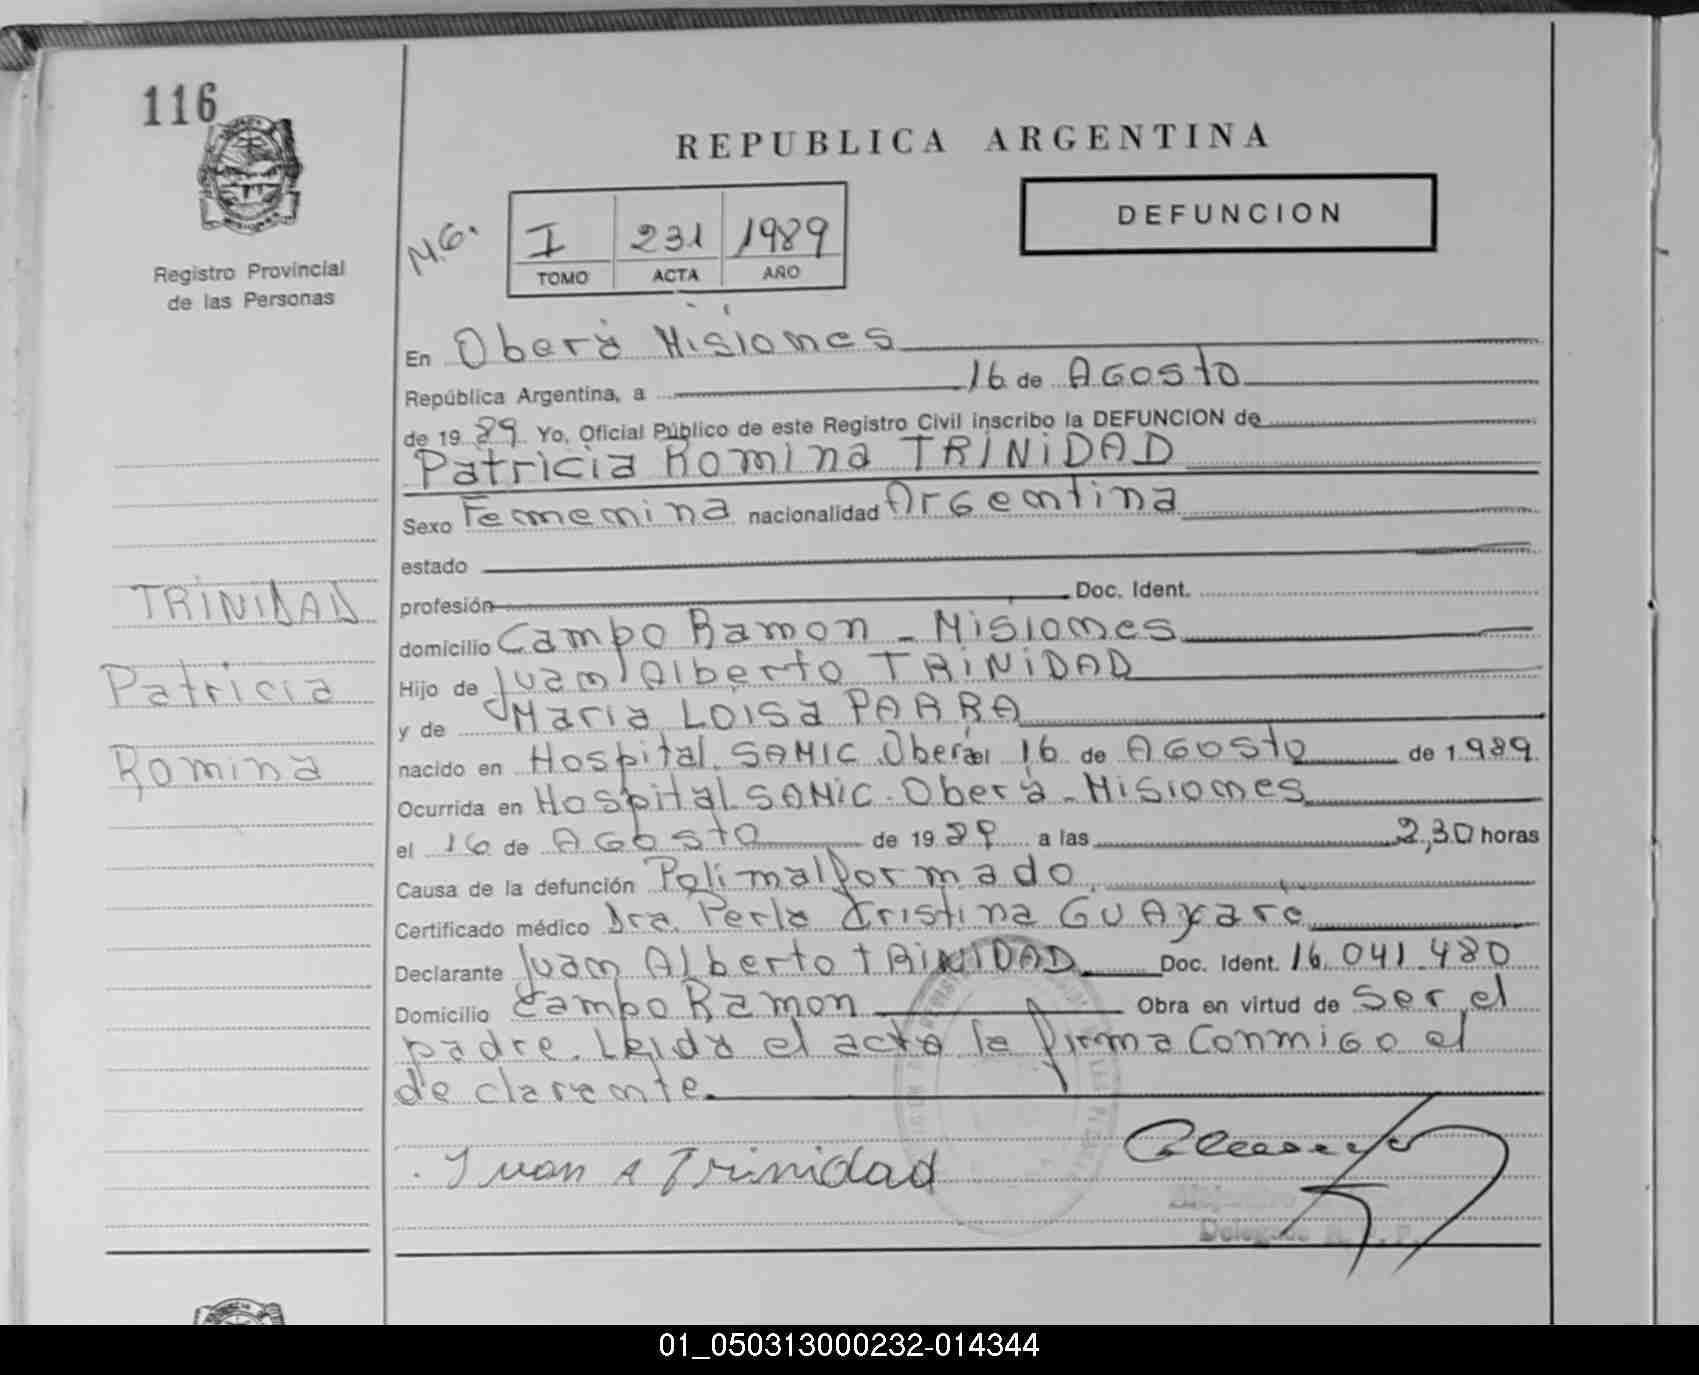 116
REPUBLICA ARGENTINA
DEFUNCION
Registro Provincial
de las Personas
N.G.
I 231 1989
TOMO ACTA AÑO
En Oberá Misiones
República Argentina, a 16 de AGosto
de 19 89 Yo, Oficial Público de este Registro Civil inscribo la DEFUNCION de
Patricia Romina TRINIDAD
Sexo Femenina nacionalidad ArGentina
estado
profesión Doc. Ident.
domicilio Campo Ramon - Misiones
Hijo de Juan Alberto TRINIDAD
y de Maria LOisa PARRA
nacido en Hospital SAMIC Oberá el 16 de AGosto de 1.989.
Ocurrida en Hospital SAMIC. Oberá - Misiones
el 16 de AGosto de 19 89 a las 2,30 horas
Causa de la defunción Polimalformado.
Certificado médico Dra. Perla Cristina
Declarante Juan Alberto TRINIDAD Doc. Ident. 16.041.480
Domicilio Campo Ramon Obra en virtud de Ser el
padre. Leida el acta la firma ConmiGo el
declarante.
Juan A Trinidad
Delegado
TRINIDAD
Patricia
Romina
01_050313000232-014344